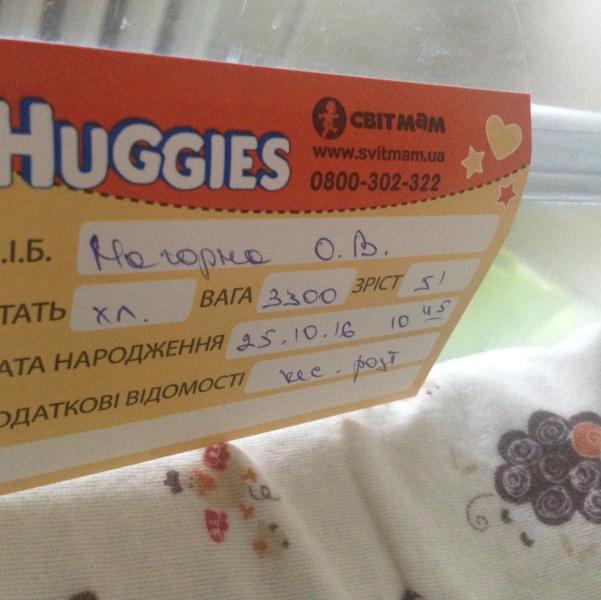 HUGGIES
СВІТ МАМ
www.svitmam.ua
0800-302-322
.І.Б. Нагорна О.В.
ТАТЬ хл. ВАГА 3300 ЗРІСТ 51
АТА НАРОДЖЕННЯ 25.10.16 10 45
ОДАТКОВІ ВІДОМОСТІ кес. розт